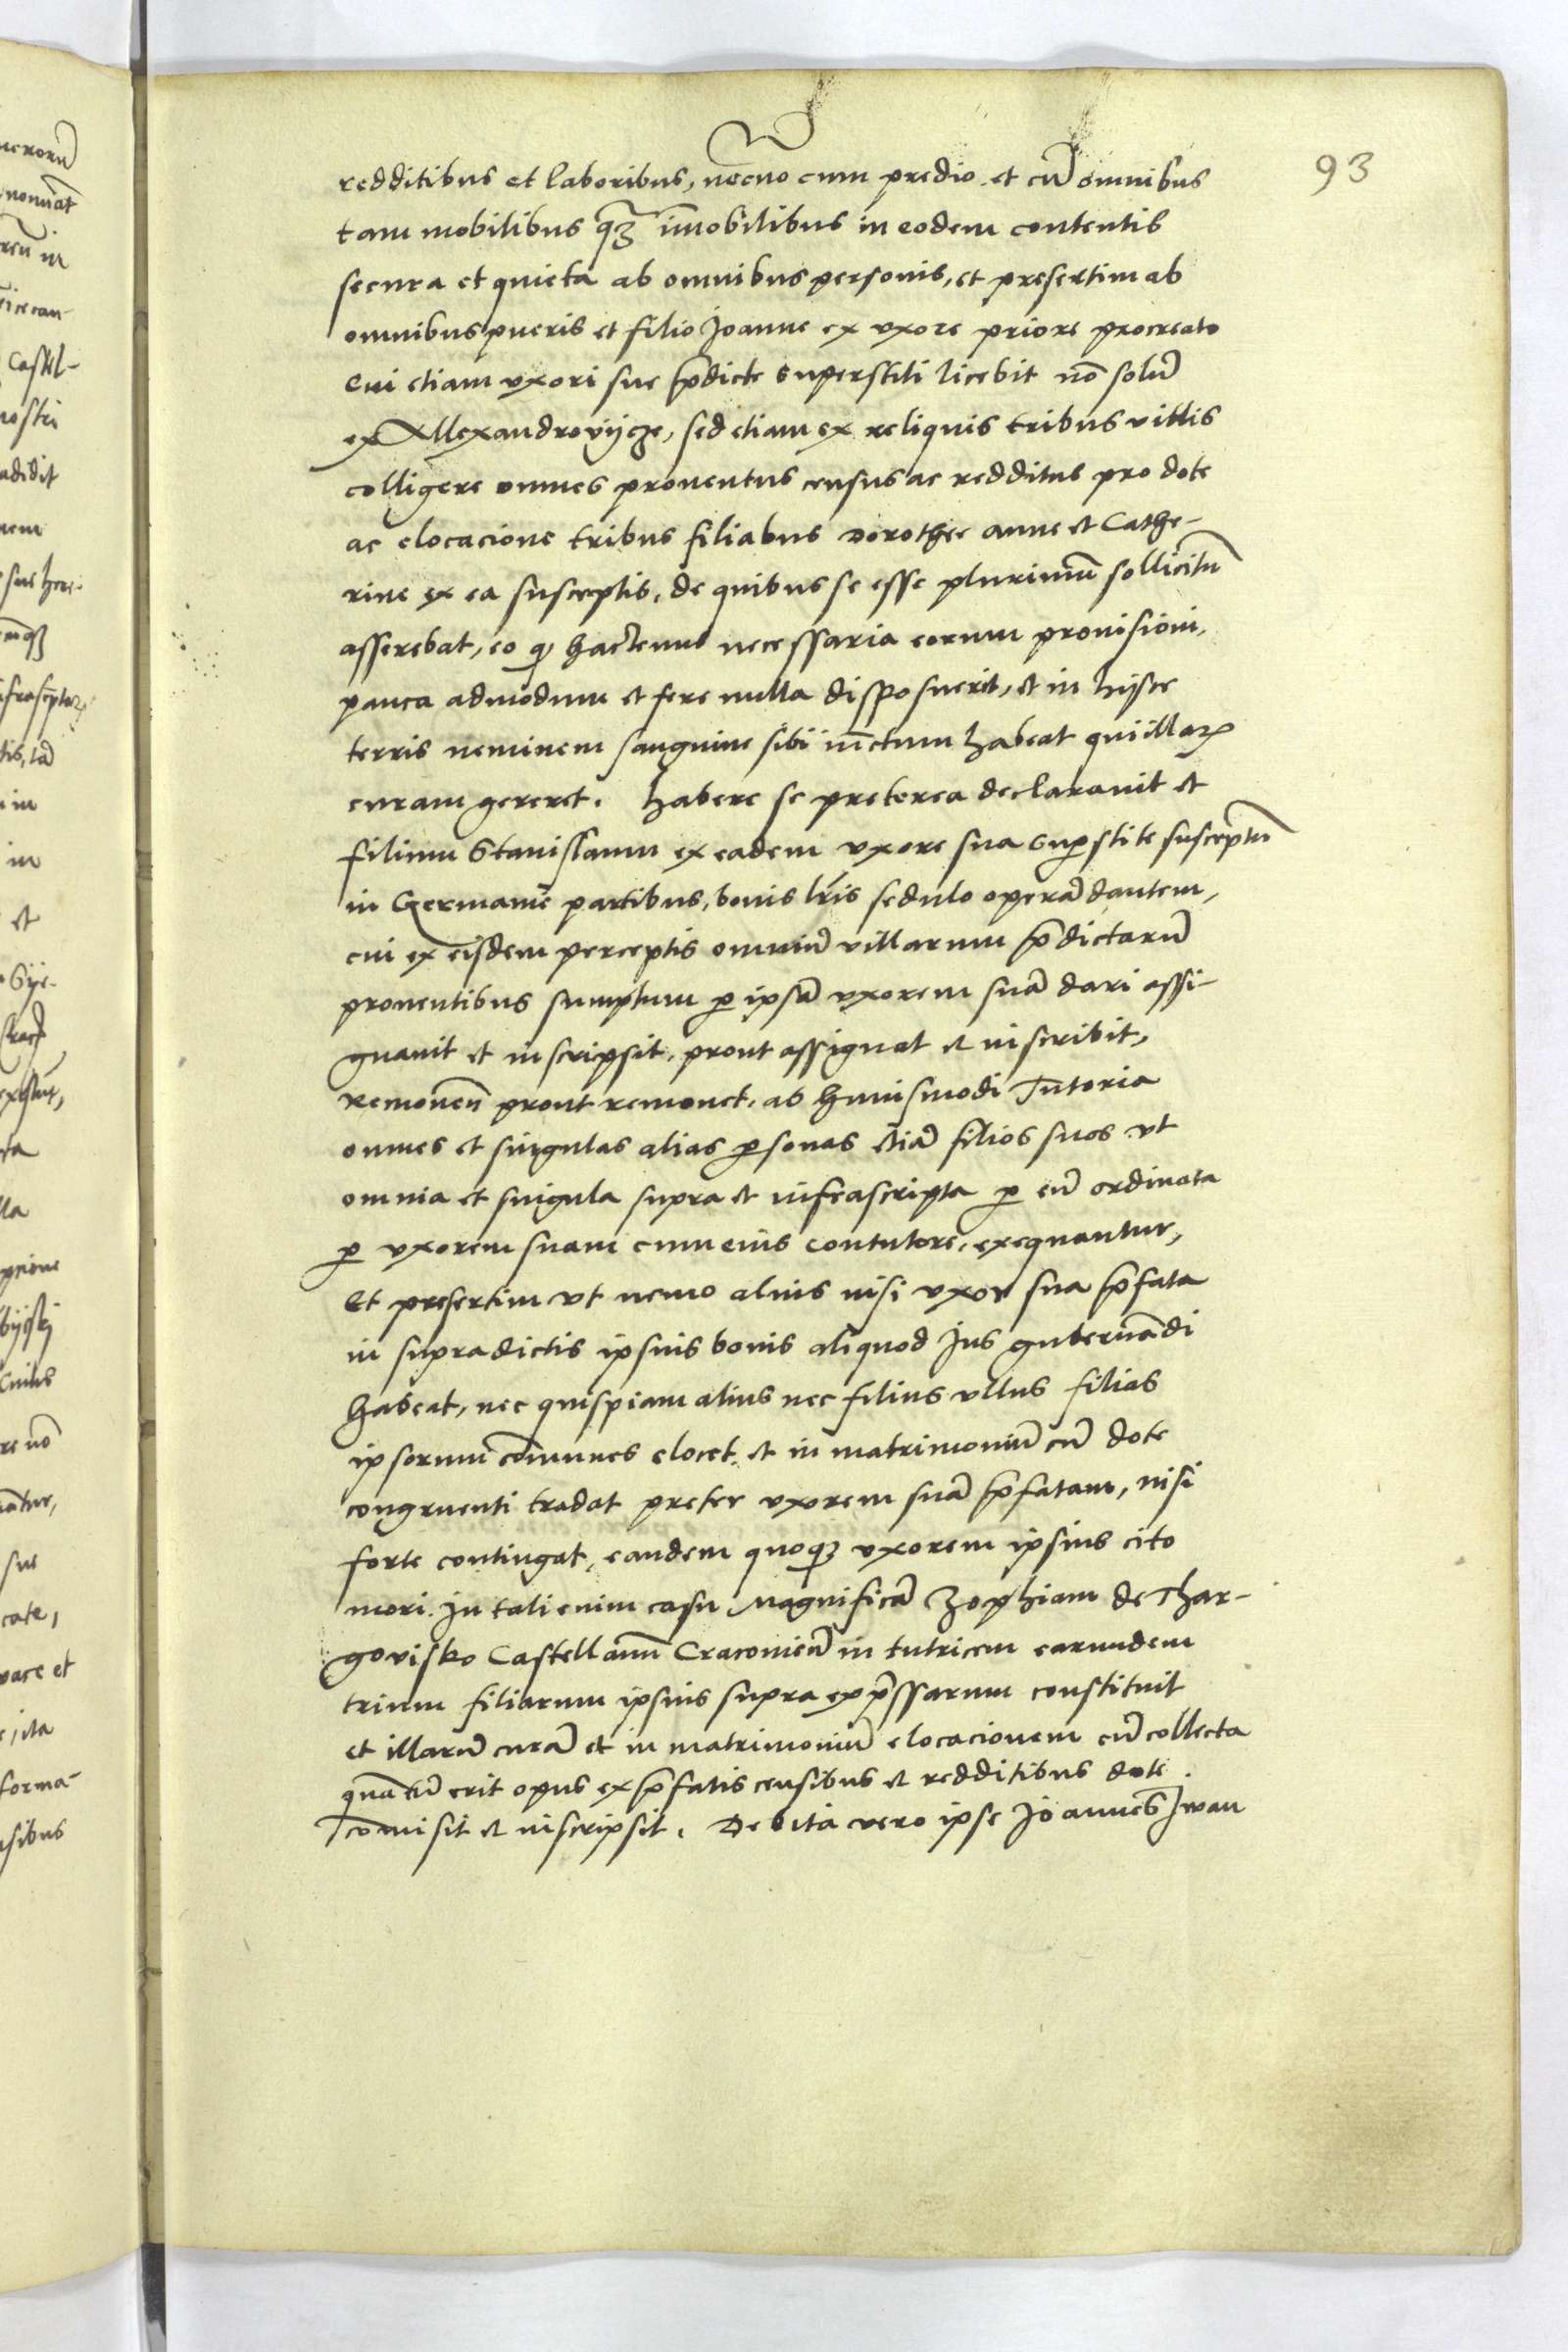 93
redditibus et laboribus, necno cum predio et cū omnibus
tam mobilibus qȝ īmobilibus in eodem contentis
secura et quieta ab omnibus personis, et presertim ab
omnibus pueris et filio Joanne ex vxore priore procreato
Cui etiam vxori sue p̄dicte superstiti licebit nō solū
ex Allexandrovijcze, sed etiam ex reliquis tribus villis
colligere omnes prouentus census ac redditus pro dote
ac elocacione tribus filiabus Dorothee Anne et Cathe-
rine ex ea susceptis, de quibus se esse plurimū sollicitū
asserebat, eo q hactenus necessaria eorum prouisioni,
pauca admodum et fere nulla disposuerit, et in hijsce
terris neminem sanguine sibi iūctum habeat qui illarꝝ
curam gereret. Habere se preterea declarauit et
filium Stanislaum ex eadem vxore sua suꝑstite susceptū
in Germanie partibus, bonis lr̄is sedulo operā dantem,
cui ex eisdem perceptis omniū villarum p̄dictarū
prouentibus sumptum ꝑ ipsā vxorem suā dari assi-
gnauit et inscripsit, prout assignat et inscribit,
Remouen̄ prout remouet, ab huiusmodi Tutoria
omnes et singulas alias ꝑsonas etiā filios suos vt
omnia et singula supra et infrascripta ꝑ eū ordinata
ꝑ vxorem suam cum eius contutore, exequantur,
Et presertim vt nemo alius nisi vxor sua p̄fata
in supradictis ipsius bonis aliquod Jus gubernādi
habeat, nec quispiam alius nec filius vllus filias
ipsorum cōmunes elocet, et in matrimoniū cū dote
congruenti tradat preter vxorem suā p̄fatam, nisi
forte contingat, eandem quoqȝ vxorem ipsius cito
mori. In tali enim casu Magnificā Zophiam de Thar-
govisko Castellanā Cracouieñ in tutricem earundem
trium filiarum ipsius supra exp̄ssarum constituit
et illarū curā et in matrimoniū elocacionem cū collecta
quātū erit opus ex p̄fatis censibus et redditibus dote
cōmisit et inscripsit. Debita vero ipse Joannes Iwan